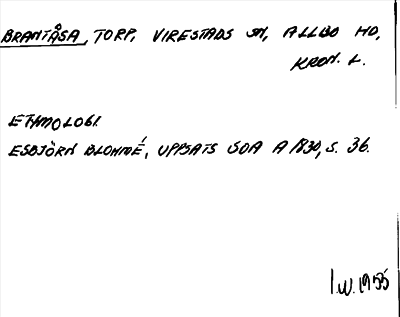 BRANTÅSA, TORP, VIRESTADS SN, ALLBO HD,
KRON. L.
ETYMOLOGI.
ESBJÖRN BLOHMÉ, UPPSATS SOA A 1830, S. 36.
I.W. 1955